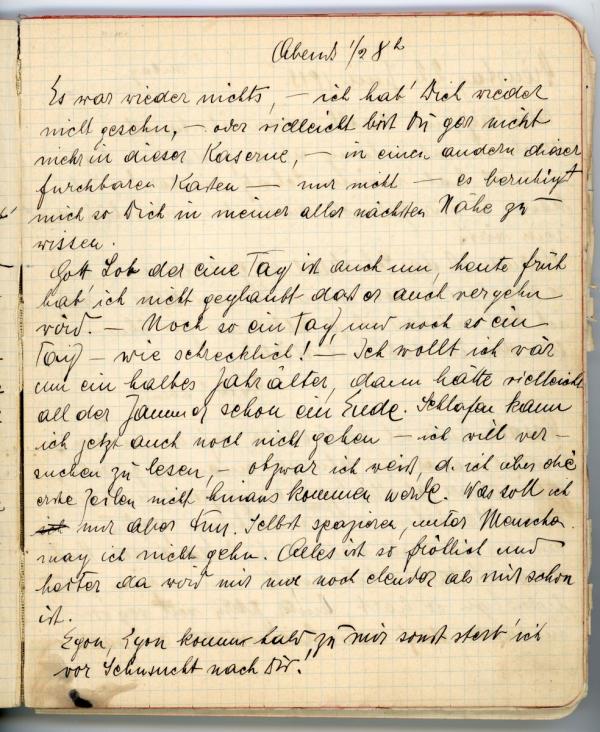 Abends 1/2 8 h
Es war wieder nichts, – ich hab' Dich wieder
nicht gesehn, – oder vielleicht bist Du gar nicht
mehr in dieser Kaserne, – in einem andern dieser
furchbaren Kasten – nur nicht – es beruhigt
mich so Dich in meiner aller nächsten Nähe zu
wissen.
Gott Lob der eine Tag ist auch um, heute früh
hab' ich nicht geglaubt dass er auch vergehn
wird. – Noch so ein Tag, und noch so ein
Tag – wie schrecklich! – Ich wollt ich wär
um ein halbes Jahr älter, dann hätte vielleicht
all der Jammer schon ein Ende. Schlafen kann
ich jetzt auch noch nicht gehen – ich will ver-
suchen zu lesen, – obzwar ich weiß, d. ich über die
erste Zeilen nicht hinaus kommen werde. Was soll ich
nur aber tun. Selbst spazieren, unter Menschen
mag ich nicht gehn. Alles ist so fröhlich und
heiter da wird mir nur noch elender als mir schon
ist.
Egon, Egon komme bald, zu mir sonst sterb' ich
vor Sehnsucht nach Dir!